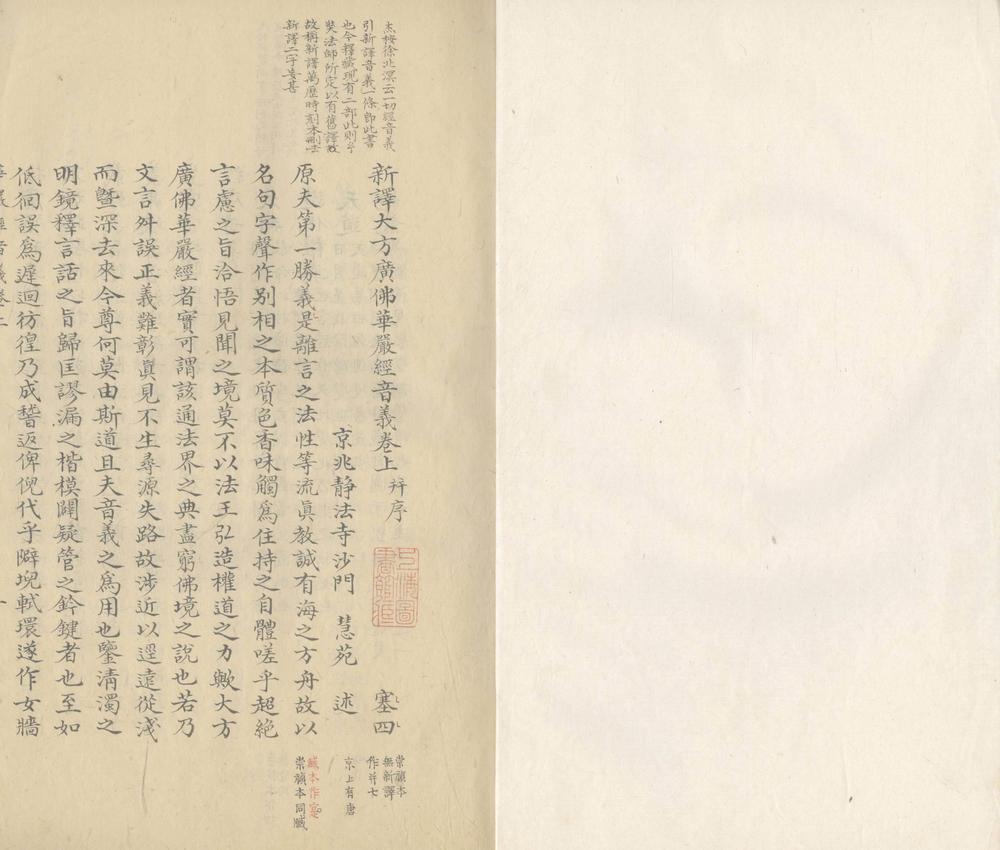 太梅徐北溟云一切經音義
引新譯音義一條即此書
也今釋藏現有二部此則
奘法師所定以有舊譯故
故稱新譯萬歷時刻本刪去
新譯二字妄甚
新譯大方廣佛華嚴經音義卷上并序 塞四
京兆靜法寺沙門 慧苑 述
原夫第一勝義是離言之法性等流眞教誠有海之方舟故以
名句字聲作別相之本質色香味觸爲住持之自體嗟乎超絶
言慮之旨洽悟見聞之境莫不以法王弘造權道之力歟大方
廣佛華嚴經者實可謂該通法界之典盡窮佛境之說也若乃
文言舛誤正義難彰眞見不生尋源失路故涉近以逕遠從淺
而曁深去來今尊何莫由斯道且夫音義之爲用也鑒清濁之
明鏡釋言話之旨歸匡謬漏之楷模闢疑管之鈐鍵者也至如
低徊誤爲遲迴彷徨乃成稽返俾倪代乎隦堄軾環遂作女牆
崇禎本
無新譯
作并七
京上有唐
藏本作寔
崇禎本同藏